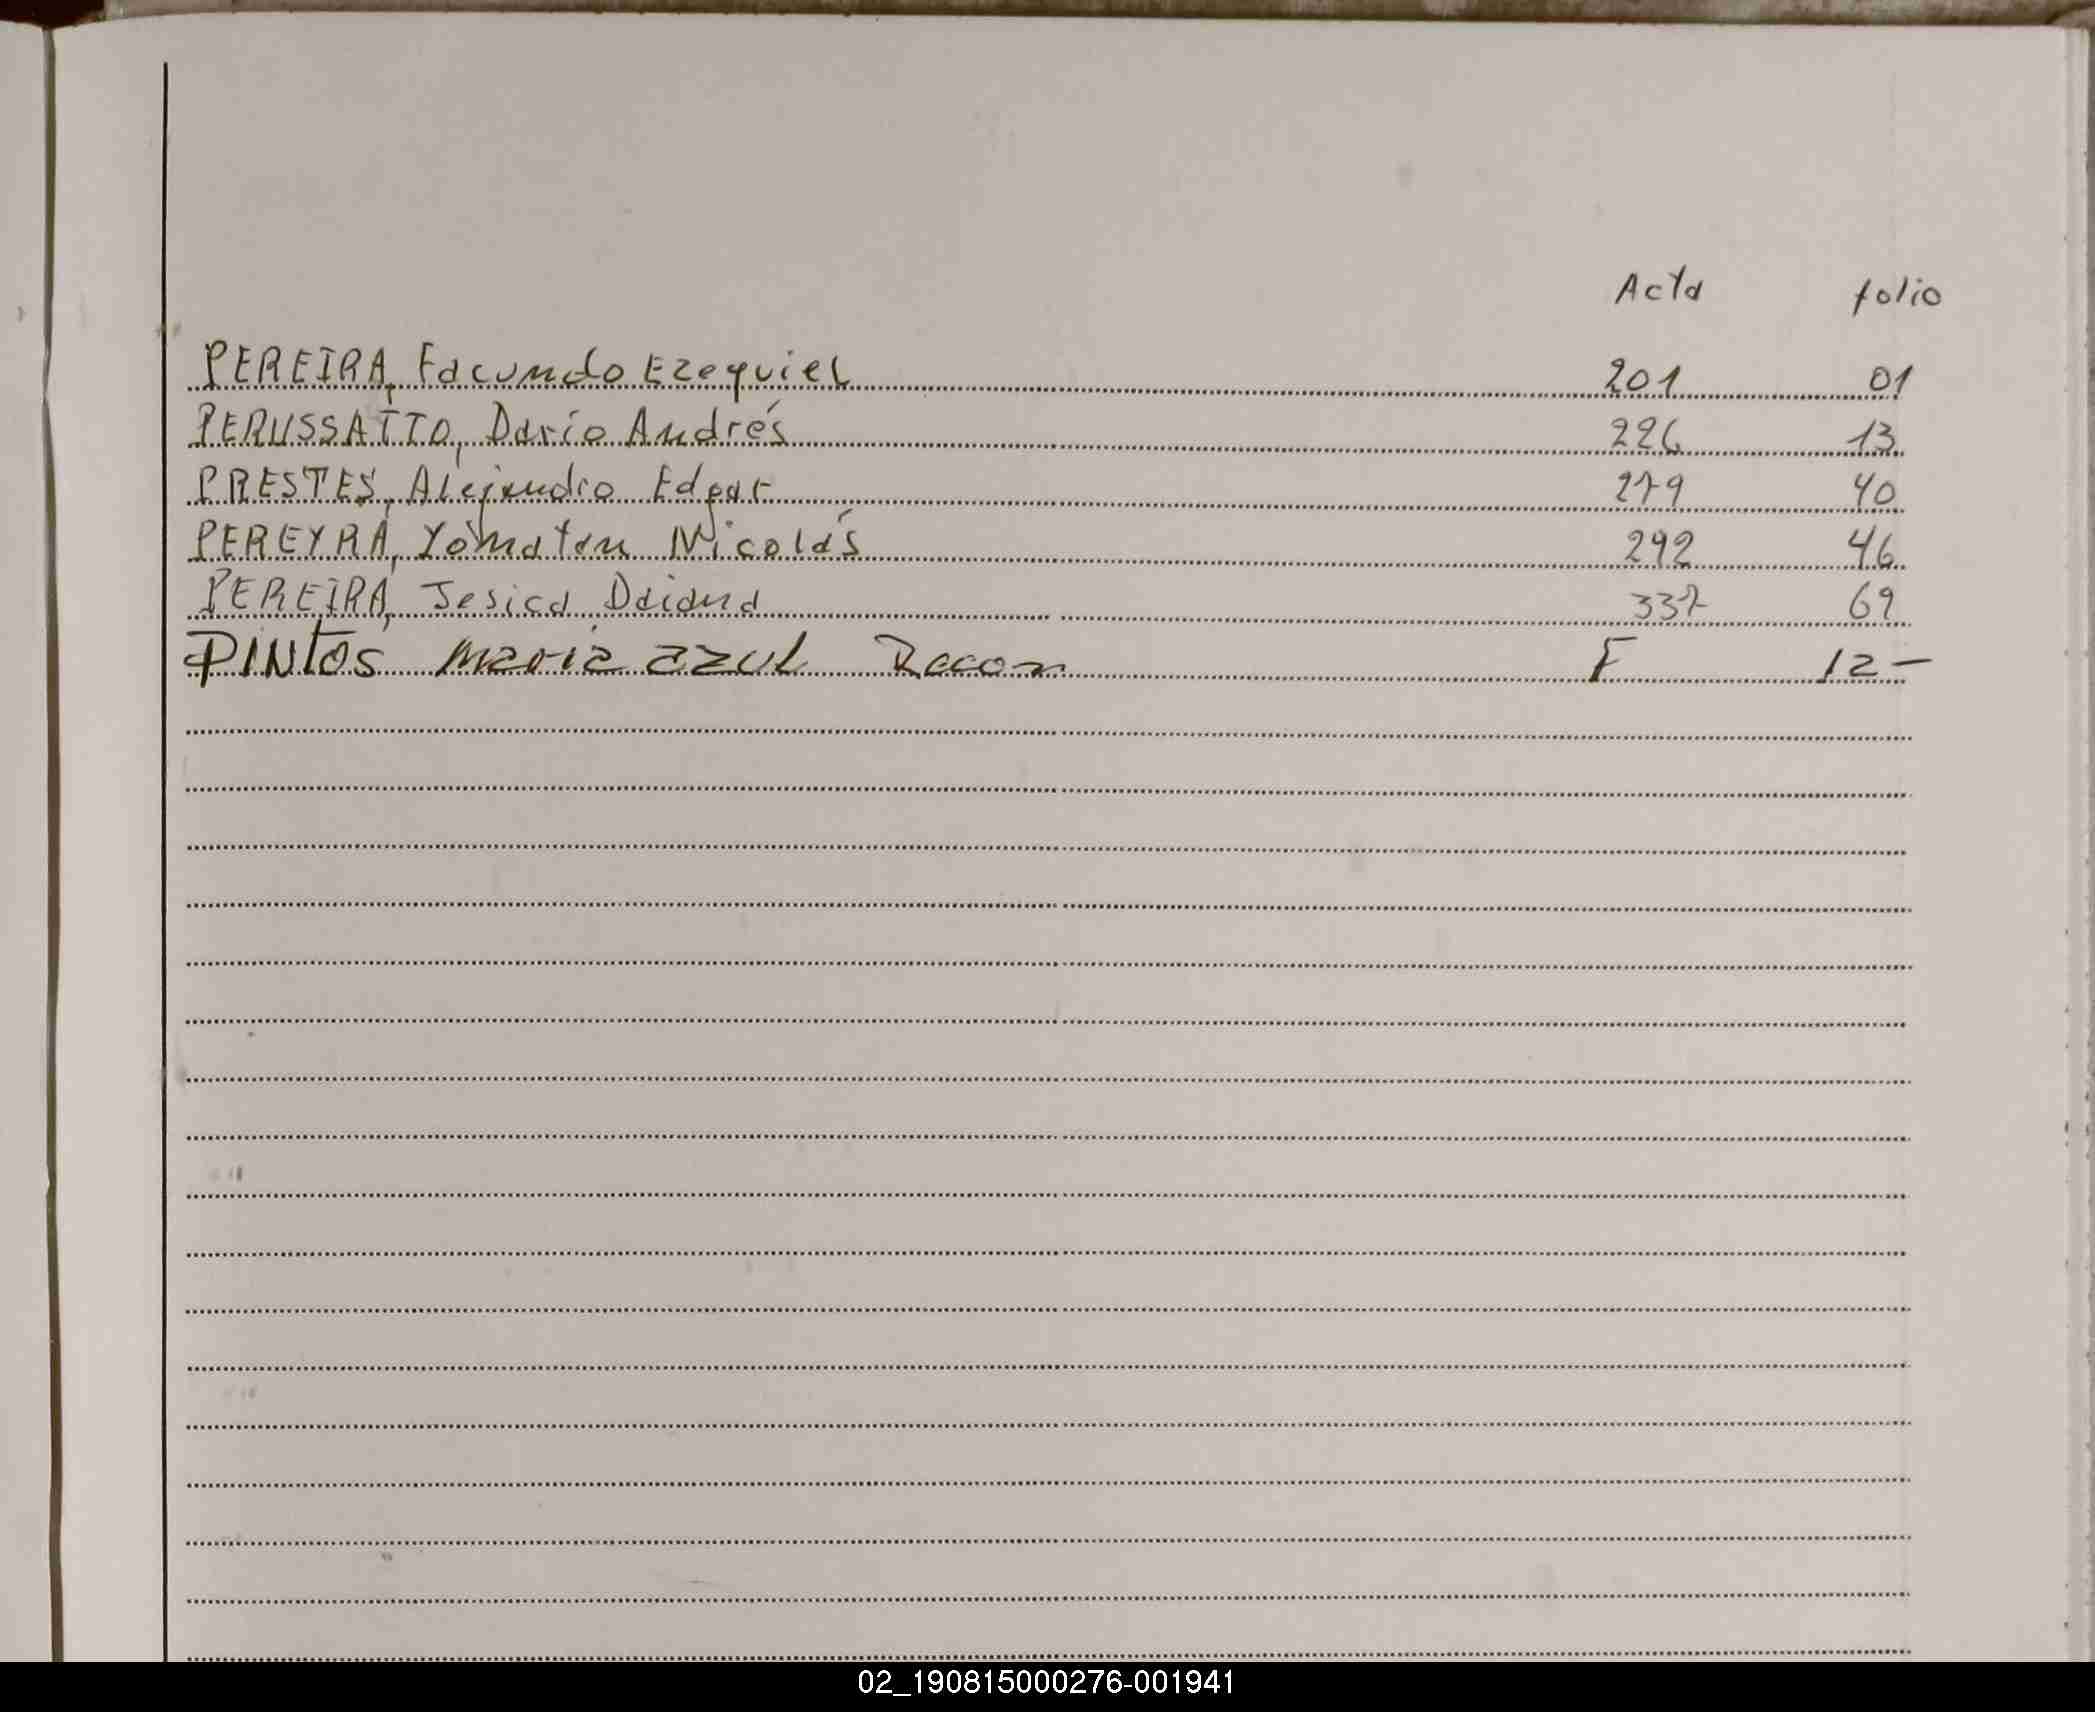 Acta folio
PEREIRA, Facundo Ezequiel 201 01
PERUSSATTO, Darío Andrés 226 13
PRESTES, Alejandro Edgar 279 40
PEREYRA, Yonatan Nicolás 292 46
PEREIRA, Jesica Daiana 337 69
PINtOS maria azul Recon F 12-
02_190815000276-001941